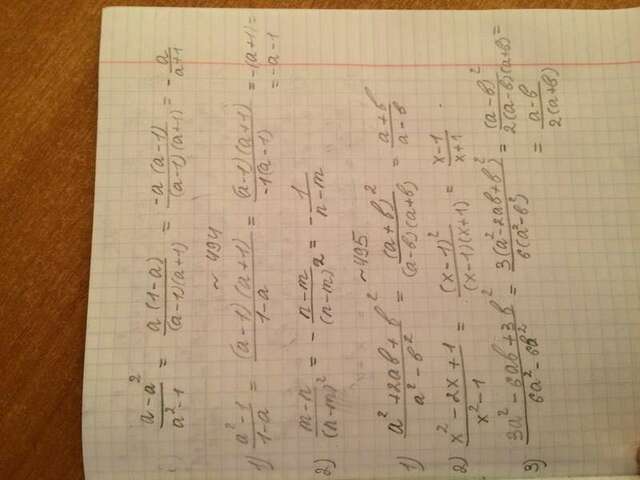 (a - a²)/(a² - 1) = a(1-a)/((a-1)(a+1)) = -a(a-1)/((a-1)(a+1)) = - a/(a+1)
~ 494
1) (a² - 1)/(1-a) = (a-1)(a+1)/(1-a) = (a-1)(a+1)/(-1(a-1)) = -(a+1) =
= -a-1
2) (m-n)/(n-m)² = - (n-m)/(n-m)² = - 1/(n-m)
~ 495
1) (a² + 2ab + b²)/(a² - b²) = (a+b)²/((a-b)(a+b)) = (a+b)/(a-b)
2) (x² - 2x + 1)/(x² - 1) = (x-1)²/((x-1)(x+1)) = (x-1)/(x+1) .
3) (3a² - 6ab + 3b²)/(6a² - 6b²) = 3(a² - 2ab + b²)/(6(a² - b²)) = (a-b)²/(2(a-b)(a+b)) =
= (a-b)/(2(a+b))